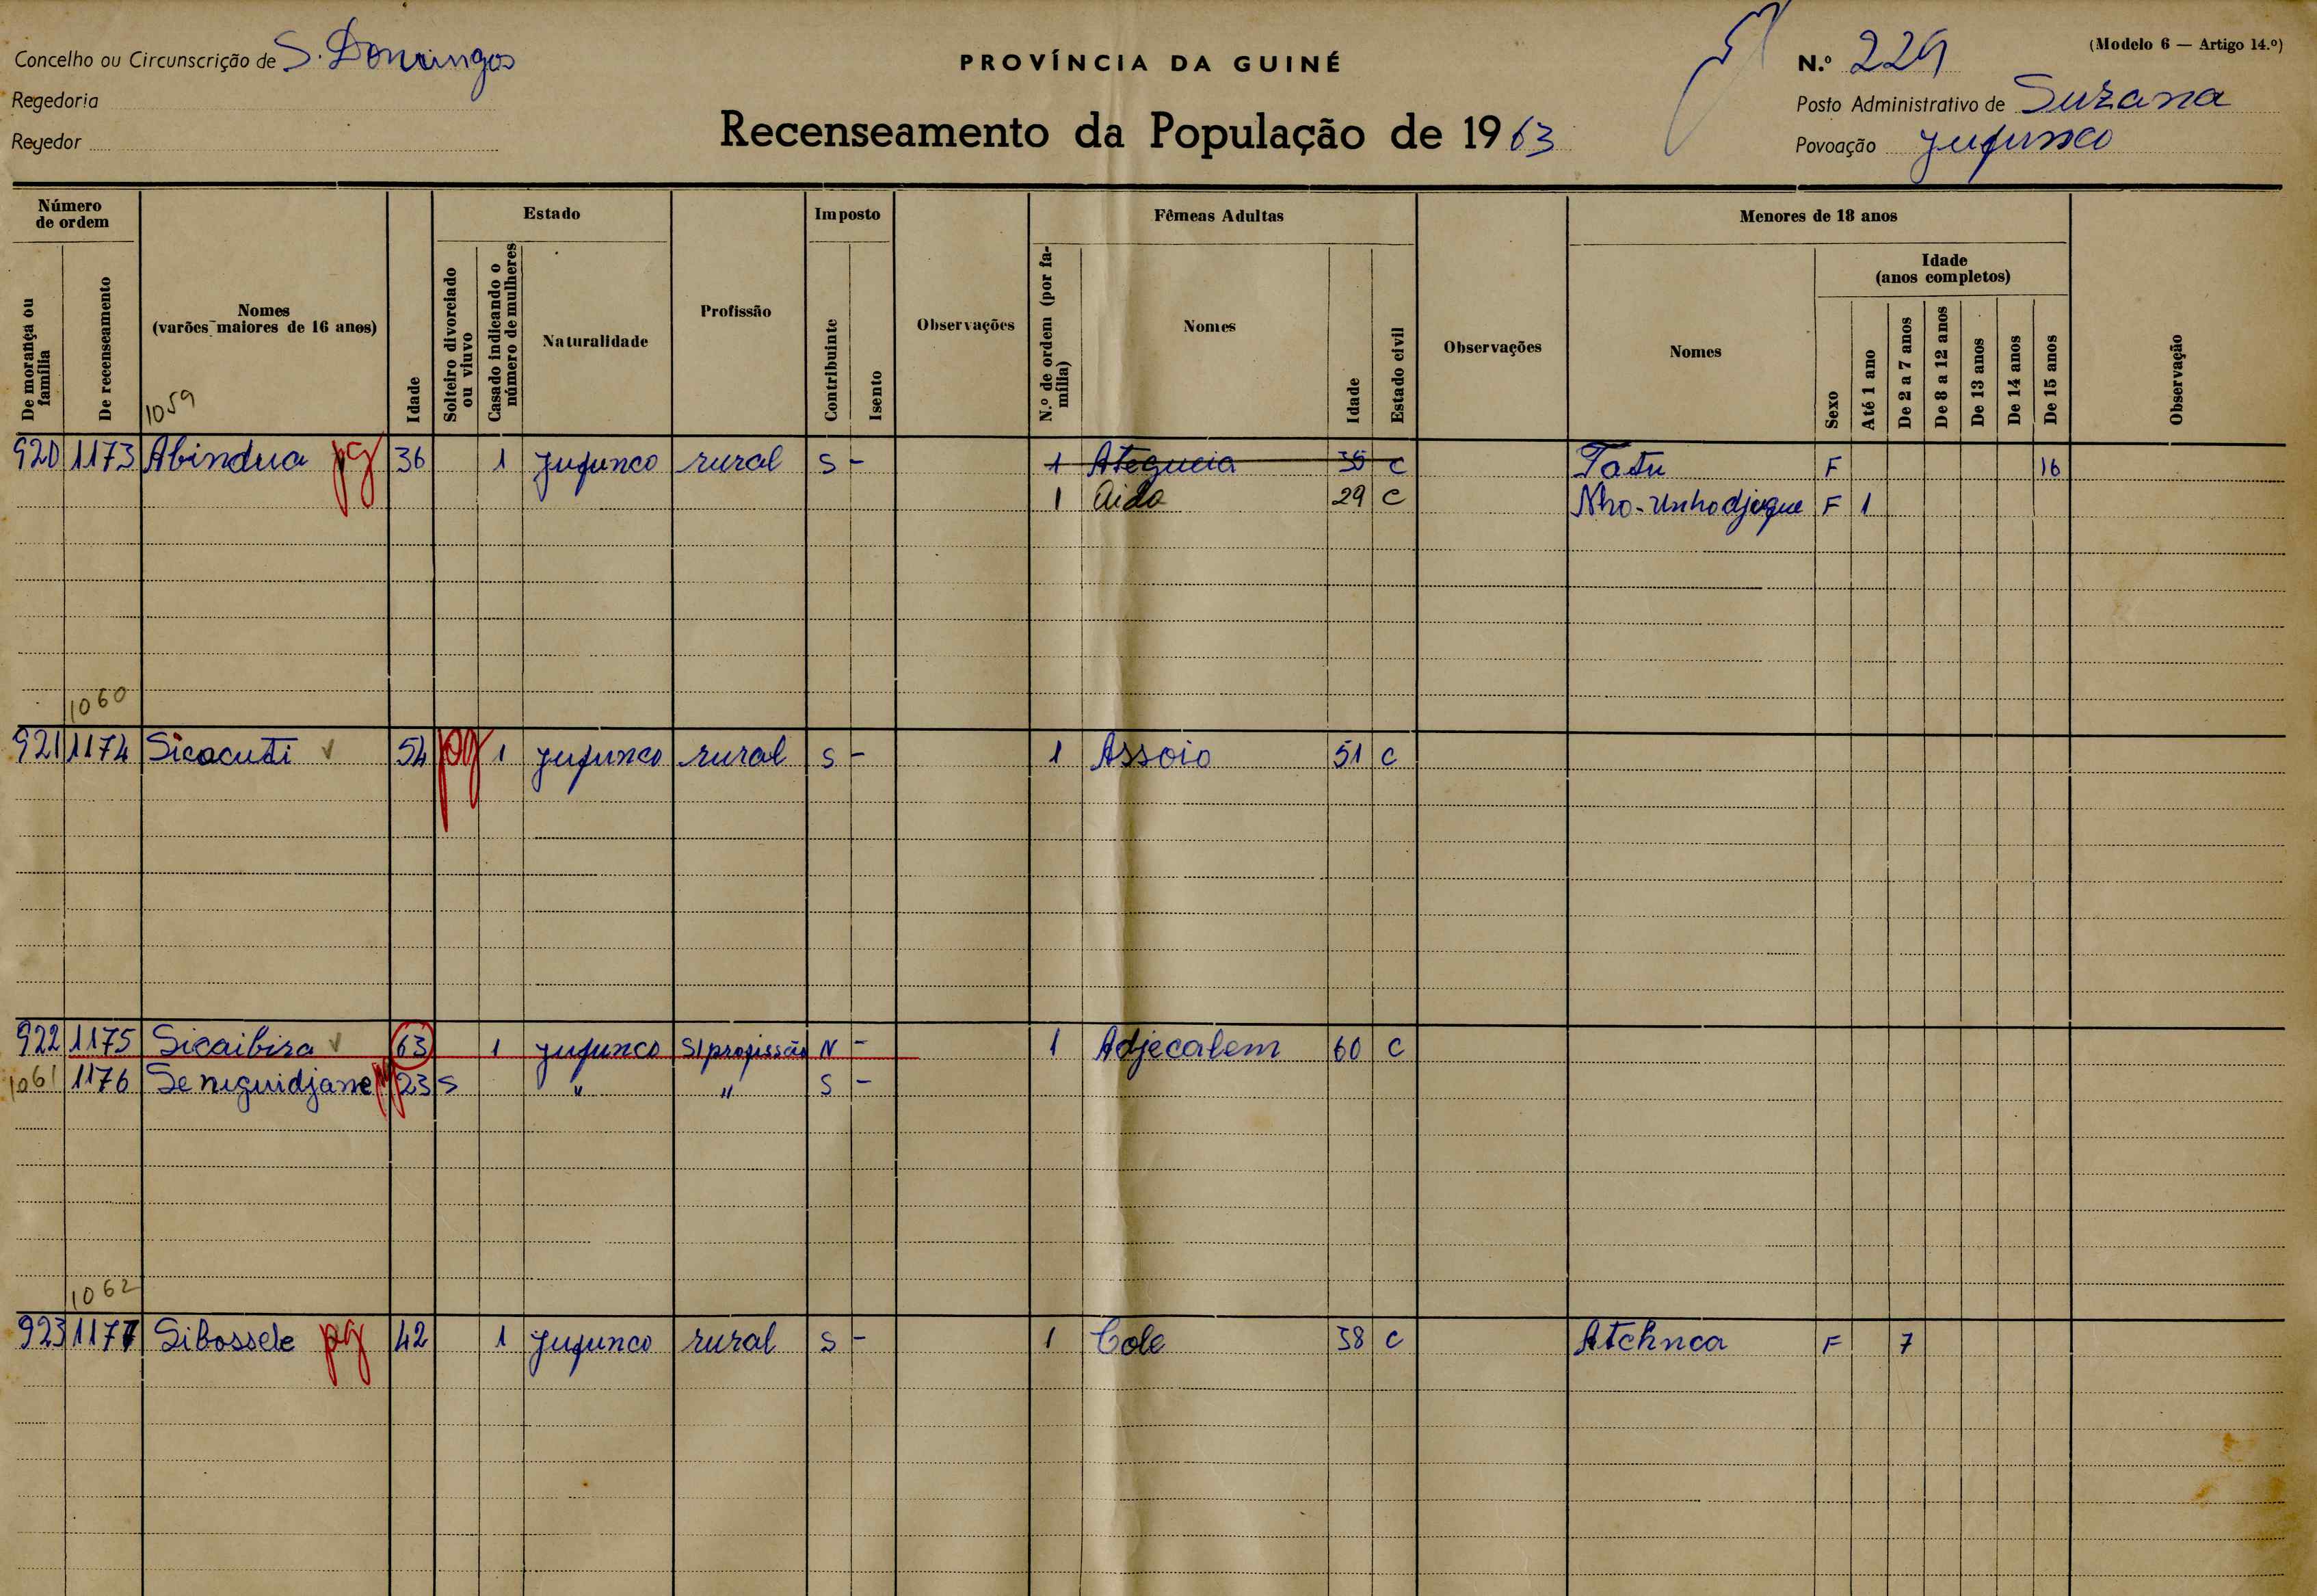 Concelho ou Circunscrição de S. Domingos
Regedoria
Regedor
PROVÍNCIA DA GUINÉ
Recenseamento da População de 1963
(Modelo 6 — Artigo 14.º)
N.º 229
Posto Administrativo de Suzana
Povoação Jufunco
Número de ordem
De morança ou família
De recenseamento
Nomes
(varões maiores de 16 anos)
1059
Idade
Estado
Solteiro divorciado ou viuvo
Casado indicando o número de mulheres
Naturalidade
Profissão
Imposto
Contribuinte
Isento
Observações
Fêmeas Adultas
N.º de ordem (por família)
Nomes
Idade
Estado civil
Observações
Menores de 18 anos
Nomes
Sexo
Idade
(anos completos)
Até 1 ano
De 2 a 7 anos
De 8 a 12 anos
De 13 anos
De 14 anos
De 15 anos
Observação
920 1173 Abindua pg 36 1 Jufunco rural S - 1 Ategueia 35 C Tatu F 16
1 Aida 29 C Nho-Unhodjugue F 1
1060
921 1174 Sicacuti 54 pg 1 Jufunco rural S - 1 Assoio 51 C
922 1175 Sicaibira 63 1 Jufunco S/profissão N - 1 Adjecalem 60 C
1061 1176 Seneguidjane pg 23 S " " S -
1062
923 1177 Sibossele pg 42 1 Jufunco rural S - 1 Cole 38 C Atchnca F 7